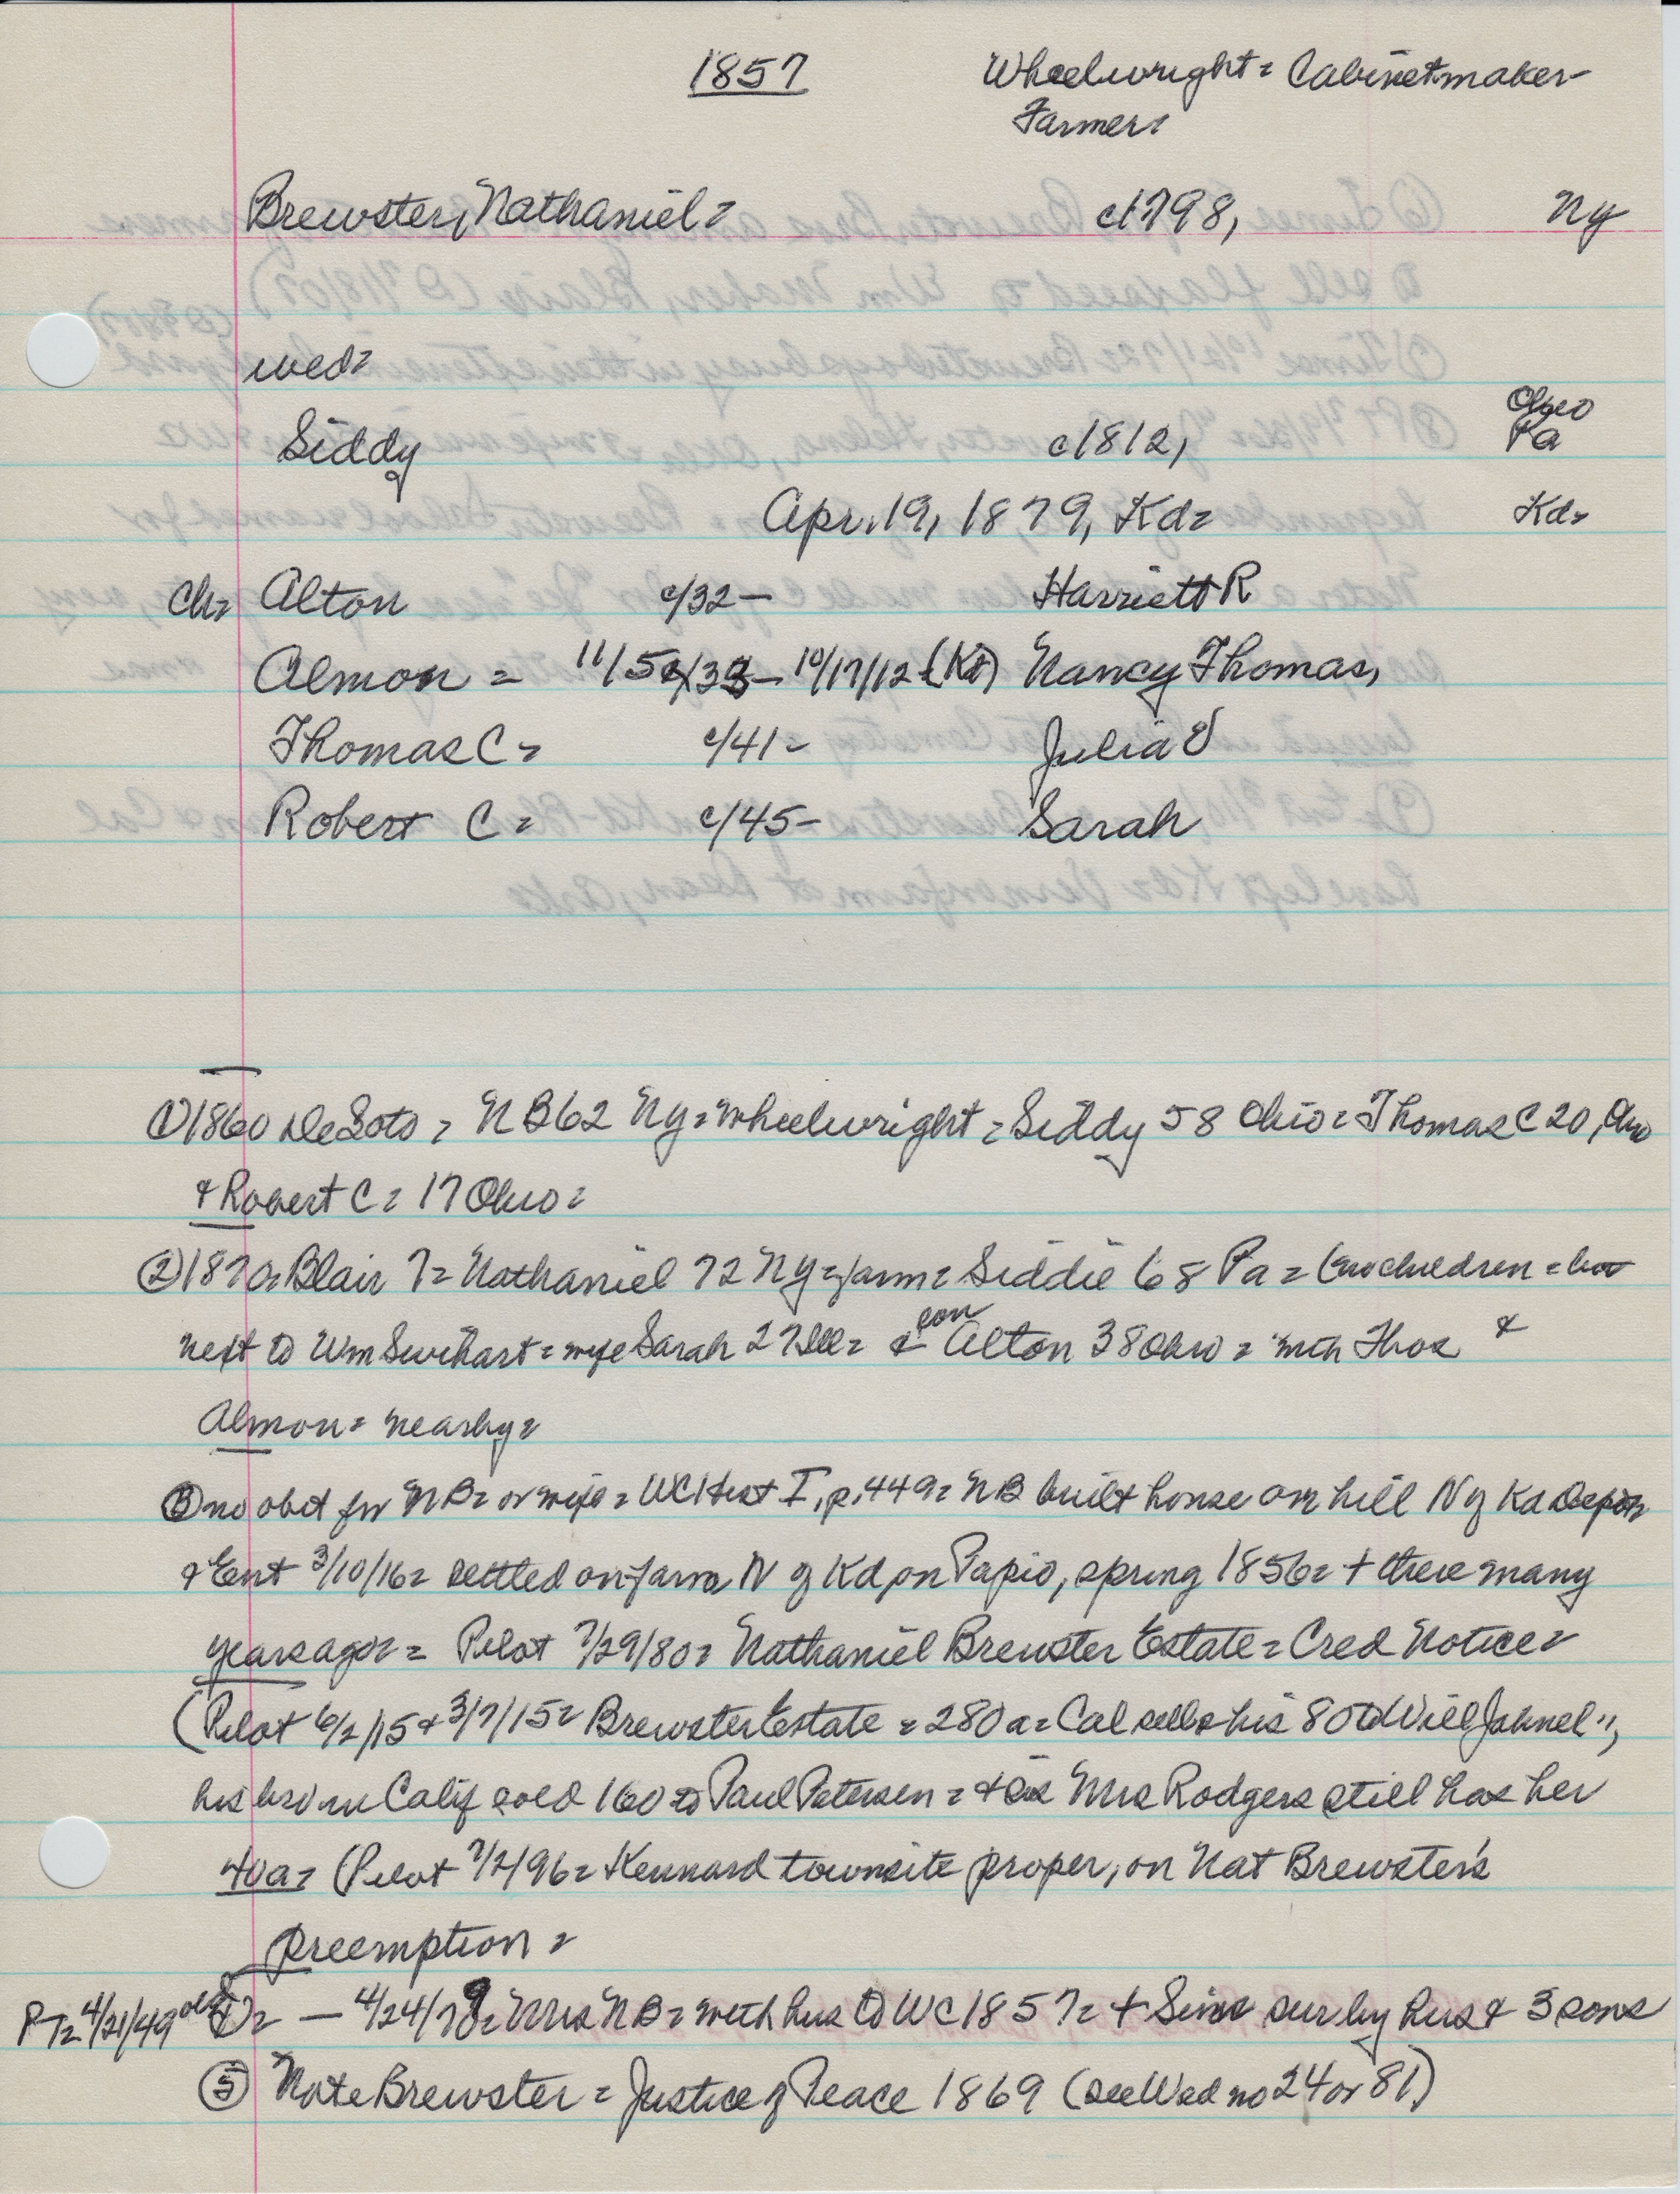 1857 Wheelwright = Cabinetmaker
Farmer=
Brewster, Nathaniel = c1798, Ny
wed=
Ohio
Siddy c1812, Pa
Apr. 19, 1879, Kd= Kd=
Ch= Alton c/32- Harriett R
Almon = 11/5/33- 10/17/12 (Kd) Nancy Thomas,
Thomas C= c/41- Julia
Robert C= c/45- Sarah
① 1860 DeSoto = NB 62 Ny = wheelwright = Siddy 58 Ohio = Thomas C 20, Ohio
& Robert C = 17 Ohio =
② 1870 = Blair T = Nathaniel 72 Ny = farm = Siddie 68 Pa = children =
son
next to Wm Swihart = wife Sarah 27 Ill = & Alton 38 Ohio = with Thos &
Almon = nearby =
③ no obit for NB = or wife = WCHist I, p. 449 = NB built house on hill N of Kd Depot
& Ent 3/10/16 = settled on farm N of Kd on Papio, spring 1856 = + there many
years ago = = Pilot 7/29/80 = Nathaniel Brewster Estate = Cred Notice =
(Pilot 6/2/15 + 3/7/15 = Brewster Estate = 280 a = Cal sells his 80 to Will Jahnel",
his bro in Calif sold 160 to Paul Petersen = + sis Mrs Rodgers still has her
40a = (Pilot 7/2/96 = Kennard townsite proper, on Nat Brewster's
preemption =
PT= 4/21/49 - 4/24/79 = Mrs NB = with hus to WC 1857 = + Since sur by hus & 3 sons
⑤ Nate Brewster = Justice of Peace 1869 (see Wed no 24 or 81)